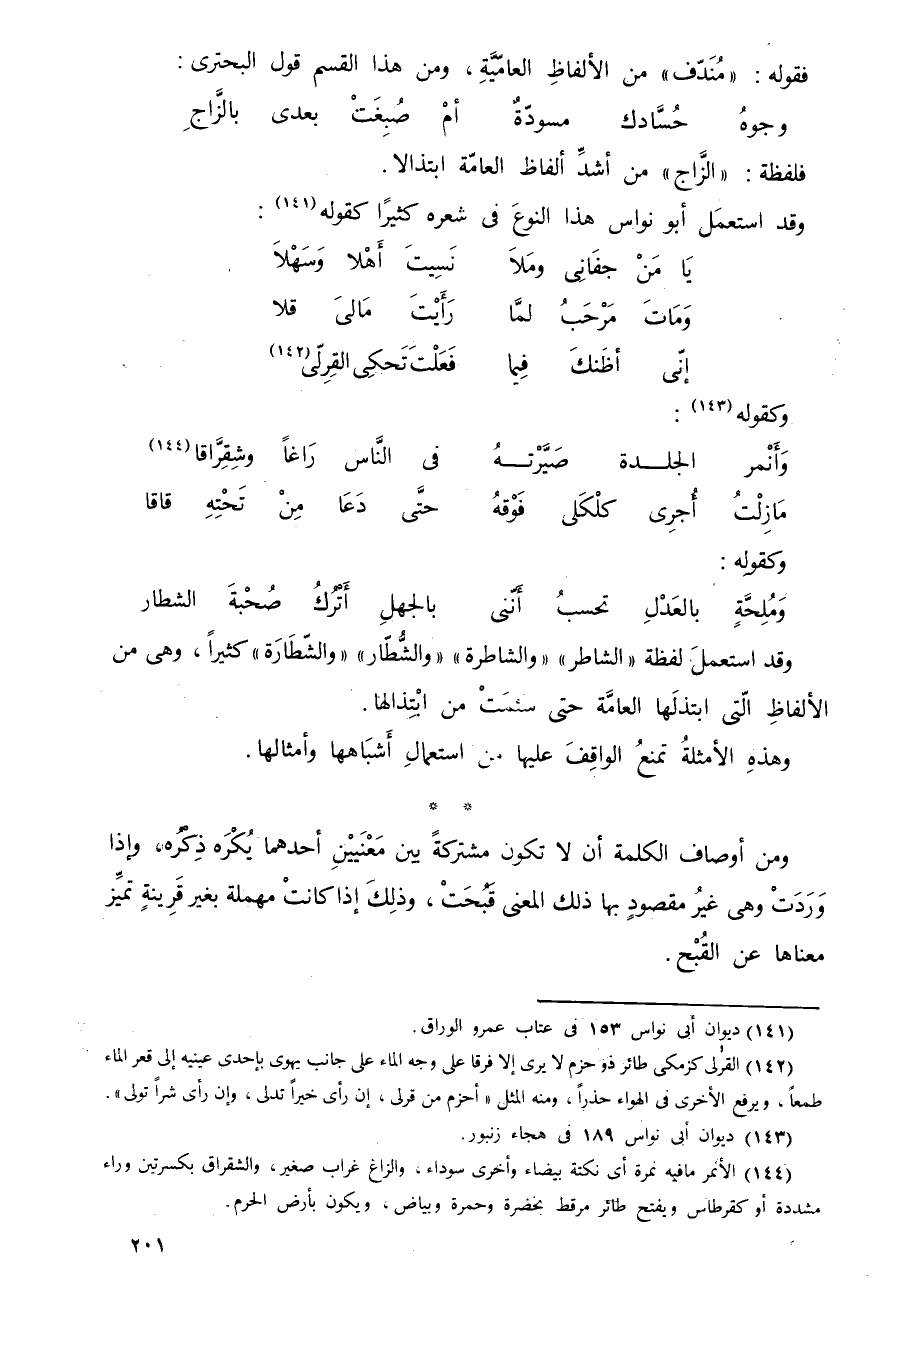 فقوله : « مُنَدّف» من الألفاظِ العاميَّةِ ، ومن هذا القسم قول البحترى :
وجوهُ حُسَّادك مسودّةٌ أمْ صُبِغَتْ بعدى بالزَّاجِ
فلفظة : «الزَّاج» من أشدِّ ألفاظ العامّة ابتذالا .
وقد استعمَل أبو نواس هذا النوعَ فى شعره كثيرًا كقوله(١٤١) :
يَا مَنْ جفَانِى ومَلاَ نَسِيتَ أَهْلا وَسَهْلاَ
وَمَاتَ مَرْحَبُ لمَّا رَأَيْتَ مَالِىَ قلا
إنّى أظَنكَ فِيما فَعَلْتَ تَحكِى القِرِلّى(١٤٢)
وكقوله(١٤٣) :
وَأَنْمر الجلدة صَيَّرْتهُ فى النَّاس زَاغاً وشِقِرَّاقا(١٤٤)
مَازِلْتُ أُجرِى كلْكَلى فَوْقهُ حتَّى دَعَا مِنْ تَحْتِهِ قاقا
وكقولِه :
وَمُلِحَّةٍ بالعَذْلِ تحسبُ أنَّنى بالجهلِ أَتْرُكُ صُحْبةَ الشطار
وقد استعملَ لفظة «الشاطر» «والشاطرة» «والشُّطّار» «والشّطَارَة» كثيراً ، وهى من
الألفاظِ الّتى ابتذلَها العامَّة حتى سئمَتْ من ابْتِذالها .
وهذهِ الأمثلةُ تمنعُ الواقِفَ عليها من استعمالِ أَشبَاهها وأمثالها .
* *
ومن أوصاف الكلمة أن لا تكون مشتركةً بين مَعْنَيَيْنِ أحدهما يُكْرَه ذِكْرُه، وإذا
وَرَدَتْ وهى غيرُ مقصودٍ بها ذلك المعنى قَبُحَتْ ، وذلِكَ إذا كانتْ مهملة بغير قَرِينةٍ تميِّز
معناها عن القُبْح .
(١٤١) ديوان أبى نواس ١٥٣ فى عتاب عمرو الوراق .
(١٤٢) القرلى كزمكى طائر ذو حزم لا يرى إلا فرقا على وجه الماء على جانب يهوى بإحدى عينيه إلى قعر الماء
طمعاً ، ويرفع الأخرى فى الهواء حذراً ، ومنه المثل « أحزم من قرلى ، إن رأى خيراً تدلى ، وإن رأى شراً تولى» .
(١٤٣) ديوان أبى نواس ١٨٩ فى هجاء زنبور.
(١٤٤) الأنمر مافيه نمرة أى نكتة بيضاء وأخرى سوداء ، والزاغ غراب صغير ، والشقراق بكسرتين وراء
مشددة أو كقرطاس ويفتح طائر مرقط بخضرة وحمرة وبياض ، ويكون بأرض الحرم .
٢٠١